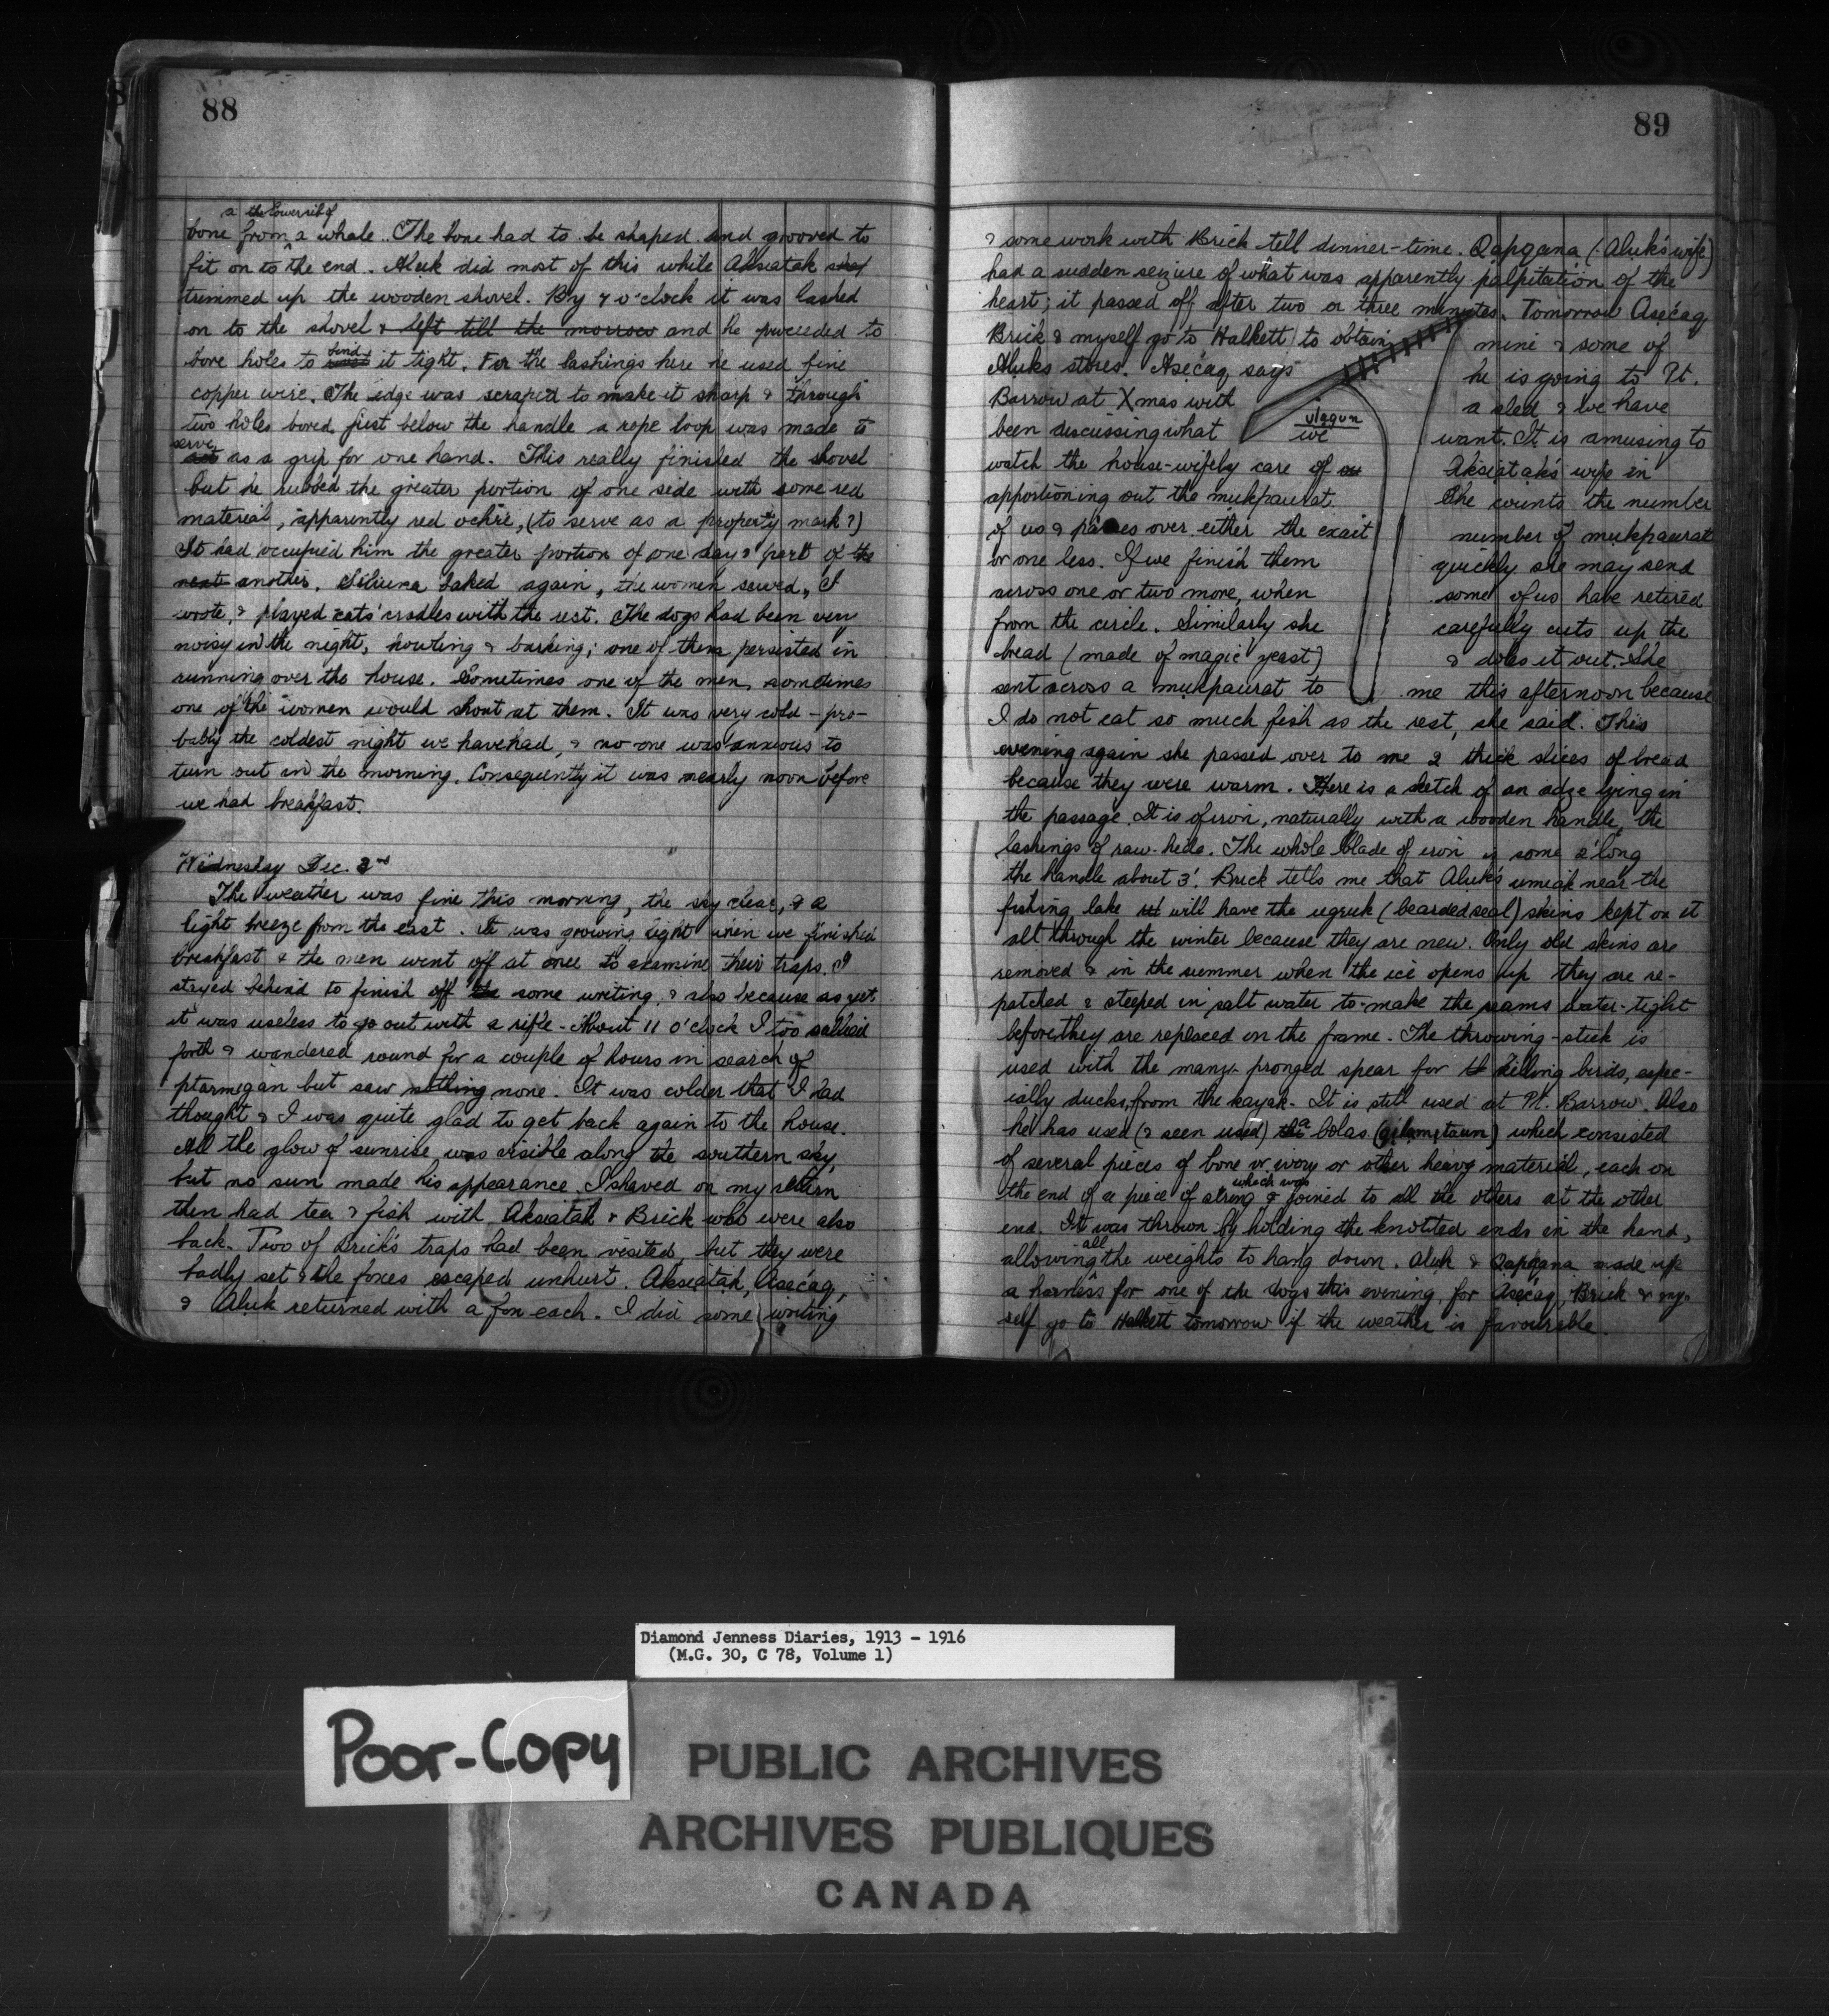 88
a the lower rib of
bone from a whale. The bone had to be shaped and grooved to
fit on to the end. Aluk did most of this while Aksiatak
trimmed up the wooden shovel. By 7 o'clock it was lashed
on to the shovel & left till the morrow and he proceeded to
bore holes to bind it tight. For the lashings here he used fine
copper wire. The edge was scraped to make it sharp & through
two holes bored just below the handle a rope loop was made to
serve as a grip for one hand. This really finished the shovel
but he rubbed the greater portion of one side with some red
material, apparently red ochre, (to serve as a property mark?)
It had occupied him the greater portion of one day & part of the
next another. baked again, the women sewed, I
wrote, & played cats' cradles with the rest. The dogs had been very
noisy in the night, howling & barking; one of them persisted in
running over the house. Sometimes one of the men, sometimes
one of the women would shout at them. It was very cold – pro-
bably the coldest night we have had, & no one was anxious to
turn out in the morning. Consequently it was nearly noon before
we had breakfast.
Wednesday Dec. 3rd
The weather was fine this morning, the sky clear, & a
light breeze from the east. It was growing light when we finished
breakfast & the men went off at once to examine their traps. I
stayed behind to finish off the some writing, & also because as yet
it was useless to go out with a rifle. About 11 o'clock I too sallied
forth & wandered round for a couple of hours in search of
ptarmigan but saw nothing none. It was colder that I had
thought & I was quite glad to get back again to the house.
All the glow of sunrise was visible along the southern sky,
but no sun made his appearance. I shaved on my return
then had tea & fish with Aksiatak & Brick who were also
back. Two of Brick's traps had been visited, but they were
badly set & the foxes escaped unhurt. Aksiatak, Asecaq,
& Aluk returned with a fox each. I did some writing
89
& some work with Brick till dinner-time. Qapqana (Aluk's wife)
had a sudden seizure of what was apparently palpitation of the
heart; it passed off after two or three minutes. Tomorrow Asecaq
Brick & myself go to Halkett to obtain mine & some of
Aluks stores. Asecaq says he is going to Pt.
Barrow at Xmas with a sled & we have
ulagun
been discussing what we want. It is amusing to
watch the house-wifely care of Aksiatak's wife in
apportioning out the mukpaurat. She counts the number
of us & passes over either the exact number of mukpaurat
or one less. If we finish them quickly she may send
across one or two more, when some of us have retired
from the circle. Similarly she carefully cuts up the
bread (made of magic yeast) & doles it out. She
sent across a mukpaurat to me this afternoon because
I do not eat so much fish as the rest, she said. This
evening again she passed over to me 2 thick slices of bread
because they were warm. Here is a sketch of an adze lying in
the passage. It is of iron, naturally with a wooden handle, the
lashings of raw-hide. The whole blade of iron is some 2' long
the handle about 3'. Brick tells me that Aluk's umiak near the
fishing lake will have the ugruk (bearded seal) skins kept on it
all through the winter because they are new. Only old skins are
removed & in the summer when the ice opens up they are re-
patched & steeped in salt water to make the seams water-tight
before they are replaced on the frame. The throwing-stick is
used with the many-pronged spear for killing birds, espe-
cially ducks, from the kayak. It is still used at Pt. Barrow. Also
he has used (& seen used) a bolas which consisted
of several pieces of bone or ivory or other heavy material, each on
which was
the end of a piece of string & joined to all the others at the other
end. It was thrown by holding the knotted ends in the hand,
allowing all the weights to hang down. Aluk & Qapqana made up
a harness for one of the dogs this evening, for Asecaq, Brick & my-
self go to Halkett tomorrow if the weather is favourable.
Diamond Jenness Diaries, 1913 - 1916
(M.G. 30, C 78, Volume 1)
Poor-Copy
PUBLIC ARCHIVES
ARCHIVES PUBLIQUES
CANADA